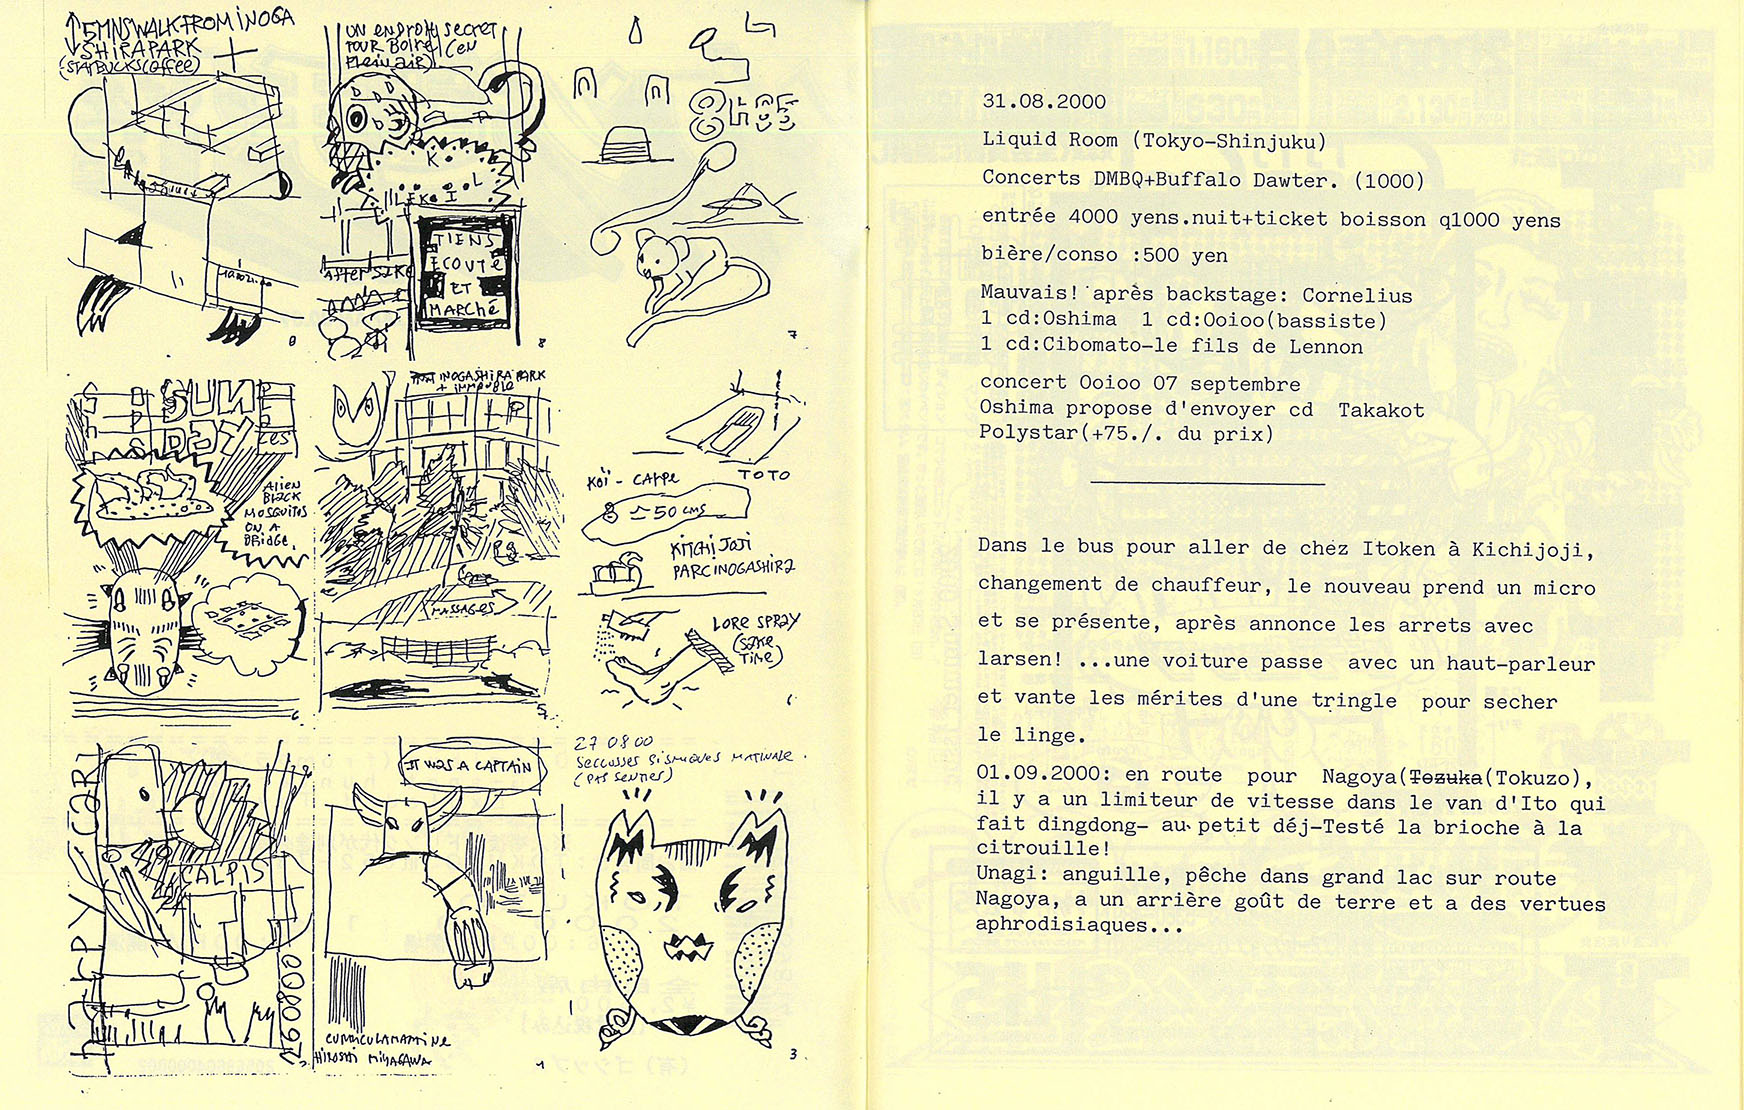 5MNS WALK FROM INOGA
SHIRA PARK
(STARBUCKS COFFEE)
UN ENDROIT SECRET
POUR BOIRE (EN
PLEIN AIR)
K
L
TIENS
ECOUTE
ET
MARCHÉ
AFTER SAKE
8
7
SUNE
DAY
LES
ALIEN
BLACK
MOSQUITOS
ON A
BRIDGE.
6
INOGASHIRA PARK
+ IMMEUBLE
MASSAGES
5
TOTO
KOÏ - CARPE
≃ 50 CMS
KITCHIJOJI
PARC INOGASHIRA
LORE SPRAY
(SAKE
TIME)
HARPY (CAR)
CALPIS
260800
IT WAS A CAPTAIN
CURRICULAMACHINE
HIROSHI MIYAGAWA
27 08 00
SECOUSSES SISMIQUES MATINALE.
(PAS SENTIES)
3
31.08.2000
Liquid Room (Tokyo-Shinjuku)
Concerts DMBQ+Buffalo Dawter. (1000)
entrée 4000 yens.nuit+ticket boisson q1000 yens
bière/conso :500 yen
Mauvais! après backstage: Cornelius
1 cd:Oshima 1 cd:Ooioo(bassiste)
1 cd:Cibomato-le fils de Lennon
concert Ooioo 07 septembre
Oshima propose d'envoyer cd Takakot
Polystar(+75./. du prix)
Dans le bus pour aller de chez Itoken à Kichijoji,
changement de chauffeur, le nouveau prend un micro
et se présente, après annonce les arrets avec
larsen! ...une voiture passe avec un haut-parleur
et vante les mérites d'une tringle pour secher
le linge.
01.09.2000: en route pour Nagoya(Tozuka(Tokuzo),
il y a un limiteur de vitesse dans le van d'Ito qui
fait dingdong- au petit déj-Testé la brioche à la
citrouille!
Unagi: anguille, pêche dans grand lac sur route
Nagoya, a un arrière goût de terre et a des vertues
aphrodisiaques...